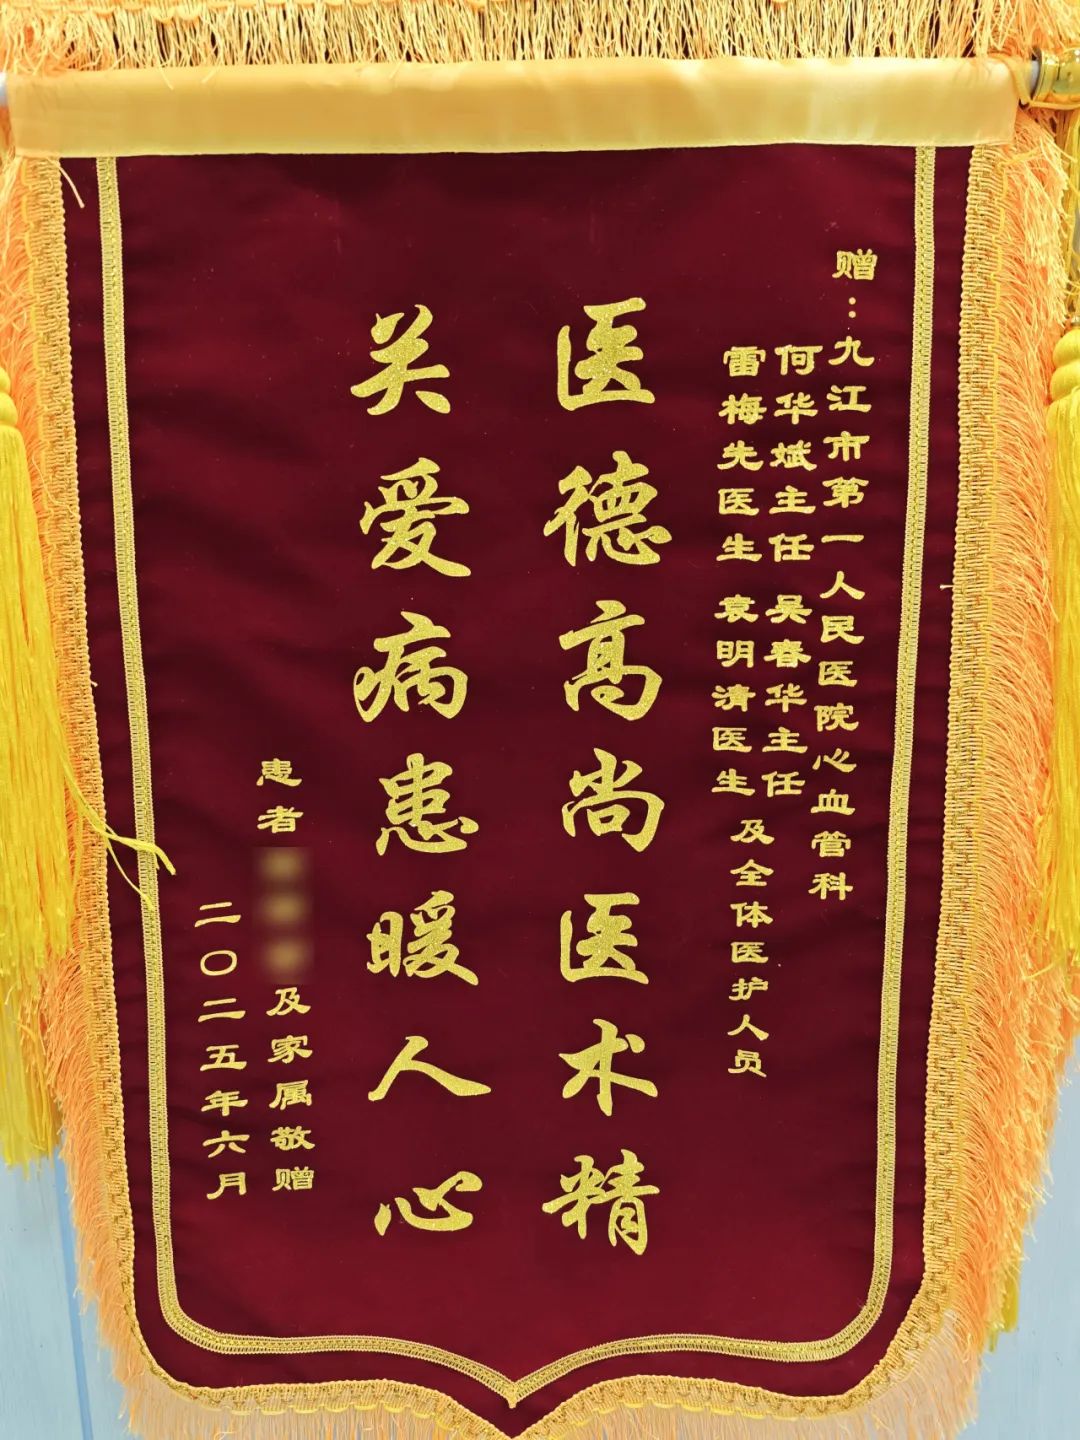 赠：九江市第一人民医院心血管科
何华斌主任 吴春华主任
雷梅先医生 袁明清医生 及全体医护人员
医德高尚医术精
关爱病患暖人心
患者 及家属敬赠
二〇二五年六月